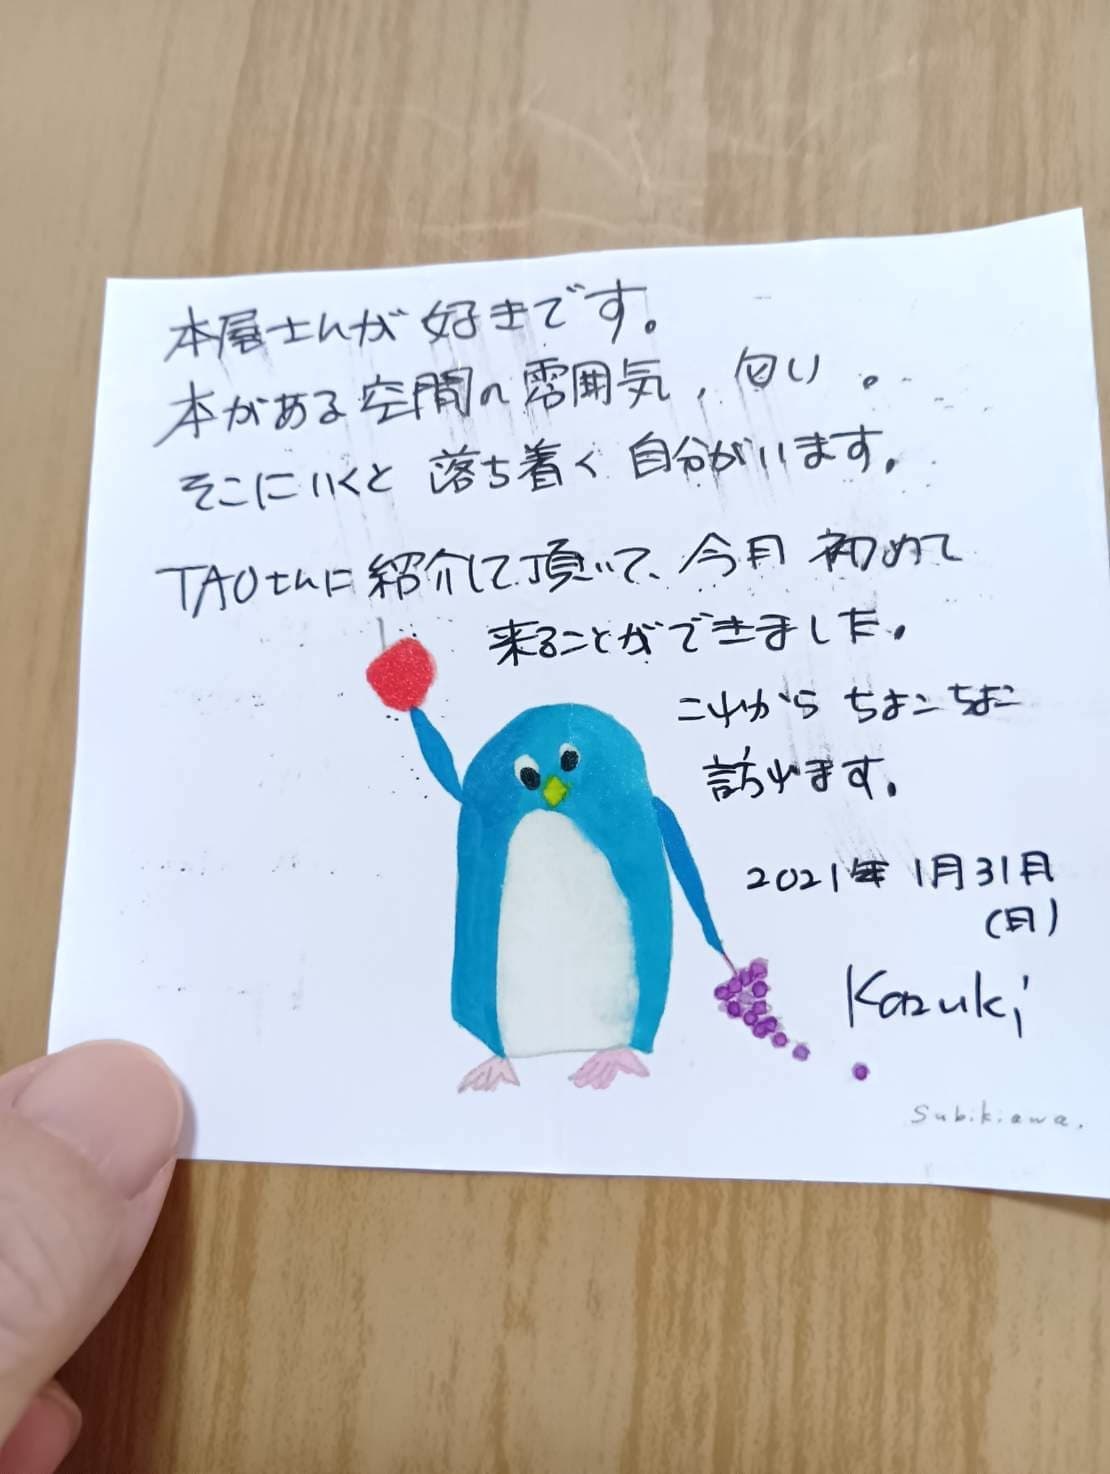 本屋さんが 好きです。
本がある空間の雰囲気、匂い。
そこにいくと 落ち着く 自分がいます。
TAOさんに紹介して頂いて、今月 初めて
来ることができました。
これから ちょこちょこ
訪れます。
2021年 1月31日
(日)
Kazuki
Subikiawa.